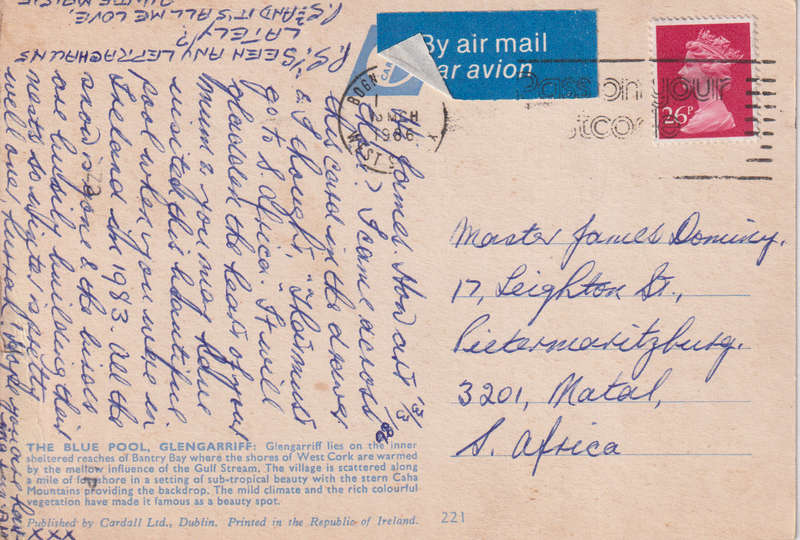 By air mail
Par avion
BOGN
MSH
1986
WEST S
X
Pass on your
stco
26P
13/3/86
James How are
I came across
this card in the drawer
& I thought, "That must
go to S. Africa." It will
gladden the heart of your
mum & you may have
visited this beautiful
pool when you were in
Ireland in 1983. All the
snow is gone & the birds
are busily building their
nests so winter is pretty
well over, hurrah! Hope you are
XXX
P.S. SEEN ANY LEPRACHAUNS
LATELY?
P.S. 2 AND IT'S ALL ME LOVE,
Master James Dominy.
17, Leighton St.,
Pietermaritzburg.
3201, Natal,
S. Africa
THE BLUE POOL, GLENGARRIFF: Glengarriff lies on the inner
sheltered reaches of Bantry Bay where the shores of West Cork are warmed
by the mellow influence of the Gulf Stream. The village is scattered along
a mile of foreshore in a setting of sub-tropical beauty with the stern Caha
Mountains providing the backdrop. The mild climate and the rich colourful
vegetation have made it famous as a beauty spot.
Published by Cardall Ltd., Dublin. Printed in the Republic of Ireland.
221